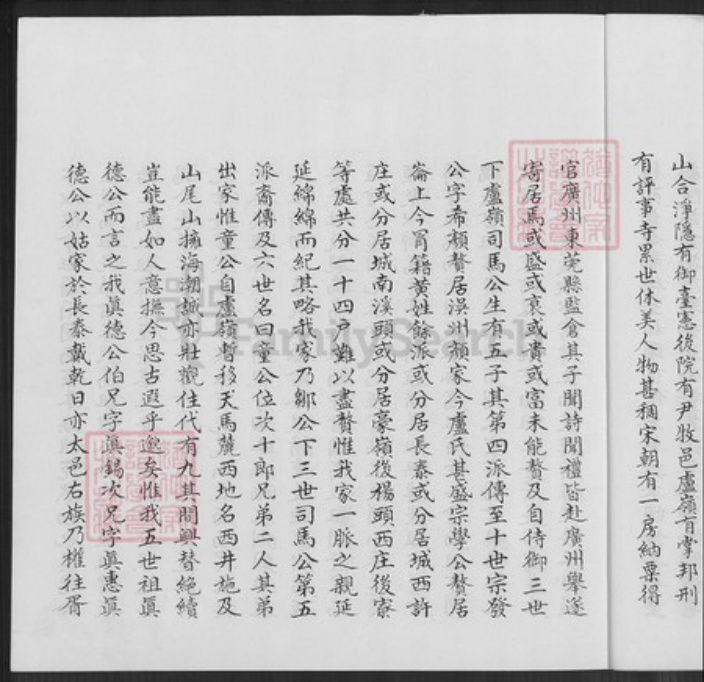 山合淨隱有御臺憲後院有尹牧邑盧嶺有掌邦刑
有評事寺累世休美人物甚稠宋朝有一房納粟得
官廣州東莞縣監倉其子聞詩聞禮皆赴廣州舉遂
寄居焉或盛或衰或貴或富未能贅及自侍御三世
下盧嶺司馬公生有五子其第四派傳至十世宗發
公字希顏贅居漳州顏家今盧氏甚盛宗學公贅居
崙上今冒籍黃姓餘派或分居長泰或分居城西許
庄或分居城南溪頭或分居豪嶺後楊頭西庄後寮
等處共分一十四戶難以盡贅惟我家一脈之親延
延綿綿而紀其略我家乃鄒公下三世司馬公第五
派裔傳及六世名曰童公位次十郎兄弟二人其弟
出家惟童公自盧嶺暫移天馬麓西地名西井施及
山尾山擁海潮誠亦壯觀住代有九其間興替絕續
豈能盡如人意撫今思古遐乎邈矣惟我五世祖眞
德公而言之我眞德公伯兄字眞錫次兄字眞惠眞
德公以姑家於長泰戴乾日亦太邑右族乃權往胥
FamilySearch